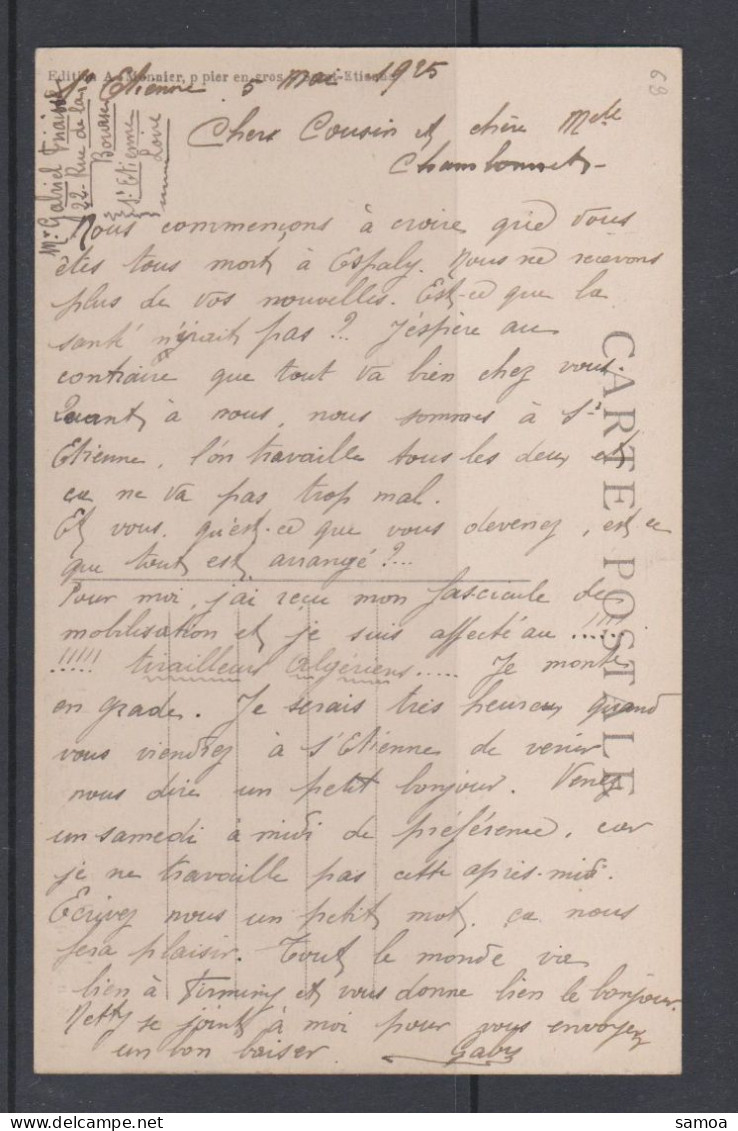 Edition A. Monnier, p pier en gros, Saint-Etienne
St Etienne 5 Mai 1925
Mr Gabriel
22 Rue de la
Bourse
St Etienne
Loire
69
Chers Cousin et chère Melle
Chambonnet
Nous commençons à croire que vous
êtes tous mort à Espaly. Nous ne recevons
plus de vos nouvelles. Est-ce que la
santé n'irait pas ?.. J'éspère au
contraire que tout va bien chez vous.
Quant à nous, nous sommes à St
Etienne, l'on travaille tous les deux et
ça ne va pas trop mal.
Et vous, qu'est-ce que vous devenez, est ce
que tout est arrangé ?...
Pour moi, j'ai reçu mon fascicule de
mobilisation et je suis affecté au !!!!!
!!!!! tirailleurs algériens..... Je monte
en grade. Je serais très heureux quand
vous viendrez à St Etienne de venir
nous dire un petit bonjour. Venez
un samedi à midi de préférence, car
je ne travaille pas cette après-midi.
Ecrivez nous un petit mot, ça nous
fera plaisir. Tout le monde va
bien à Firminy et vous donne bien le bonjour.
Netty se joint à moi pour vous envoyer
un bon baiser. Gaby
CARTE POSTALE
© samoa